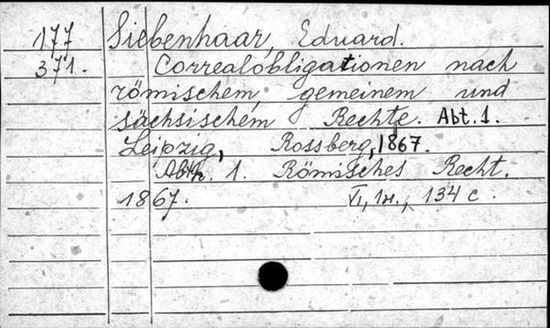 177 Siebenhaar, Eduard.
371. Correalobligationen nach
römischem, gemeinem und
sächsischem Rechte. Abt. 1.
Leipzig, Rossberg, 1867.
Abth. 1. Römisches Recht.
1867. VI, 1н., 134 c.